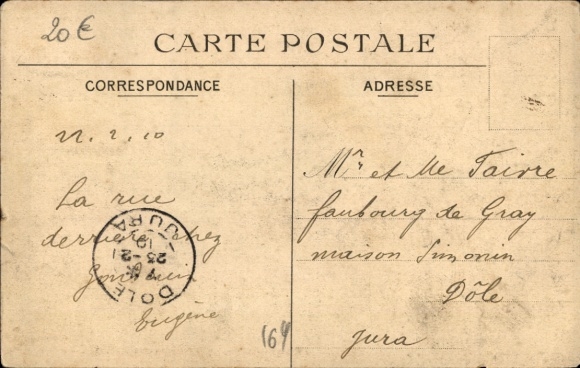 20€
CARTE POSTALE
CORRESPONDANCE
22.2.10
La rue
derrière chez
Eugène
DOLE
JURA
23-2
10
164
ADRESSE
Mr et Me Faivre
faubourg de Gray
maison Simonin
Dôle
Jura